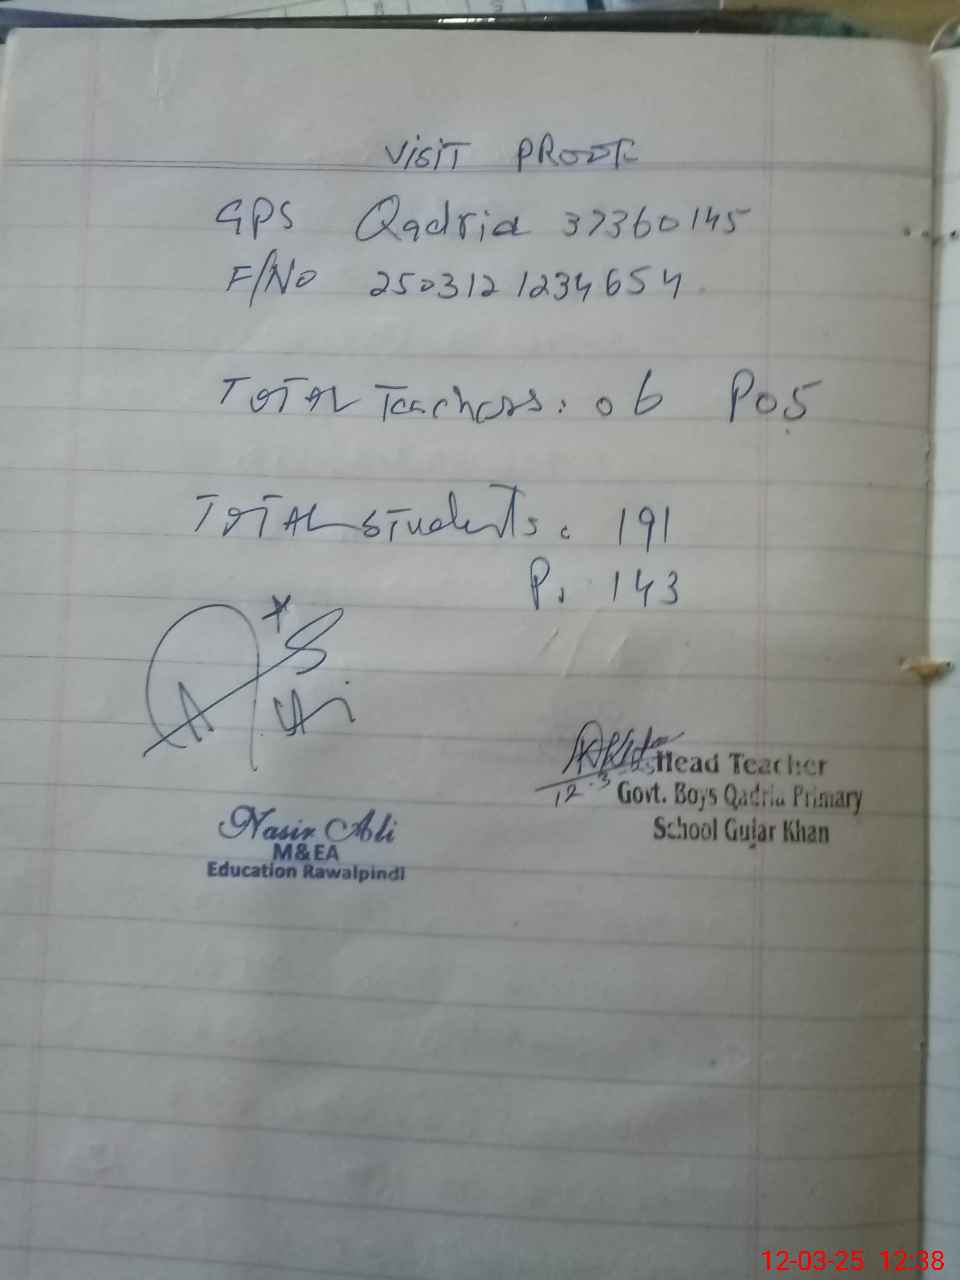 VISIT PROOF
GPS Qadria 37360145
F/NO 2503121234654
TOTAL Teachers: 06 P05
TOTAL Students: 191
P. 143
Nasir Ali
M&EA
Education Rawalpindi
12.3
Head Teacher
Govt. Boys Qadria Primary
School Gujar Khan
12-03-25 12:38